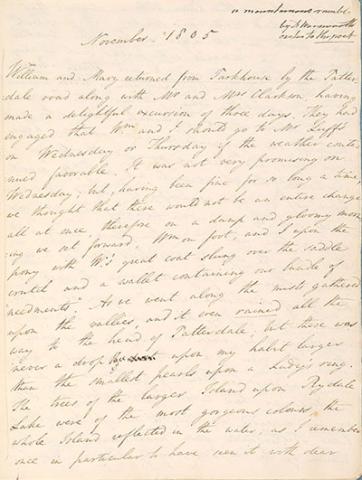 a mountainous ramble
by D. Wordsworth
sister to the poet
November 1805
William and Mary returned from Parkhouse by the Patter-
dale road along with Mr and Mrs Clarkson, having
made a delightful excursion of three days. They had
engaged that Wm and I should go to Mr Luff's
on Wednesday or Thursday if the weather conti
nued favorable. It was not very promising on
Wednesday; but, having been fine for so long a time,
we thought that there would not be an entire change
all at once, therefore on a damp and gloomy morn
ing we set forward, Wm on foot, and I upon the
pony with W's great coat slung over the saddle
crutch and a wallet containing our bundle of
needments. As we went along the mist gathered
upon the vallies, and it even rained all the
way to the head of Patterdale; but there was
never a drop upon my habit larger
than the smallest pearls upon a Lady's ring.
The trees of the larger Island upon Rydale
Lake were of the most gorgeous colours, the
whole Island reflected in the water, as I remember
once in particular to have seen it with dear